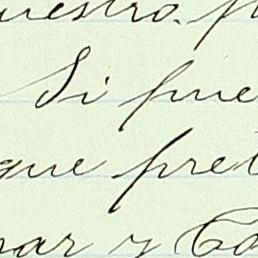 uestro. p
Si fue
que pret
nar y Co